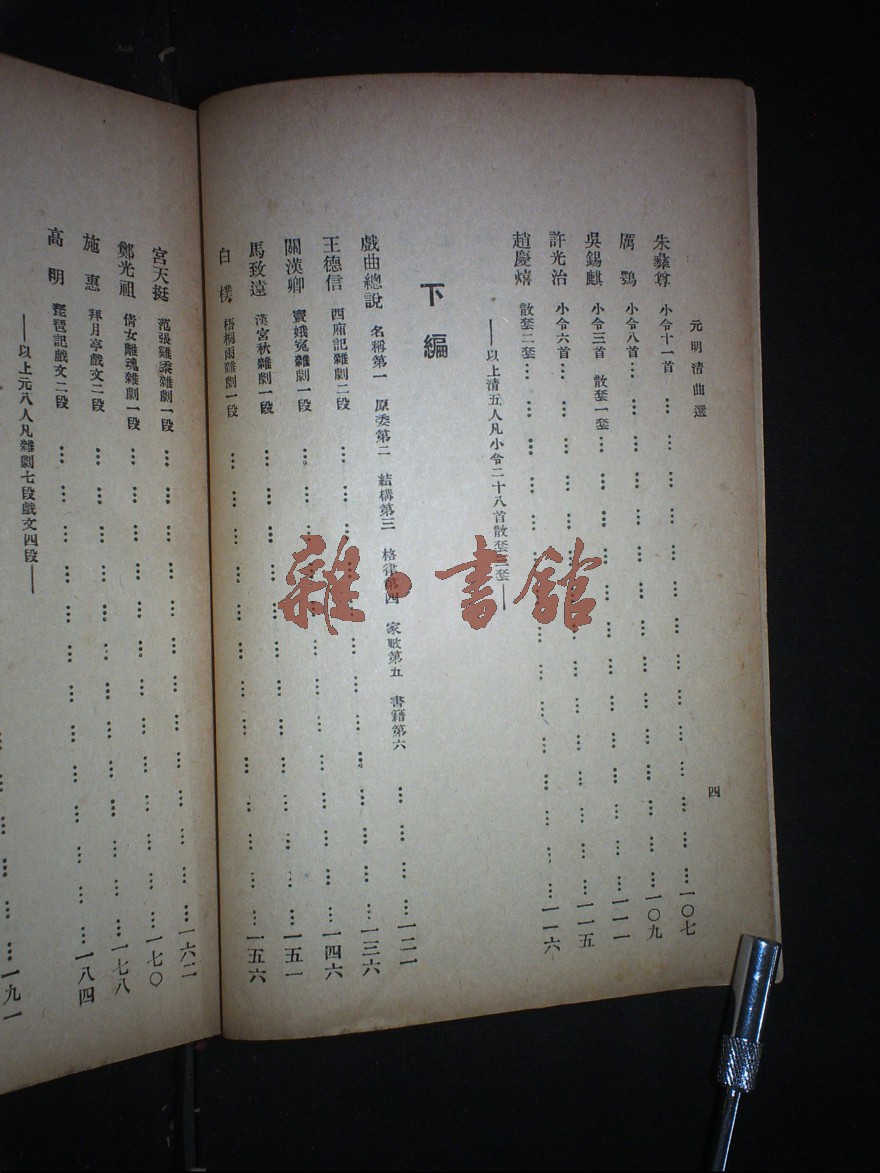 元明清曲選
四
朱彝尊 小令十一首…………………………一〇七
厲鶚 小令八首…………………………一〇九
吳錫麒 小令三首 散套一套…………………………一一一
許光治 小令六首…………………………一一五
趙慶熺 散套二套…………………………一一六
——以上清五人凡小令二十八首散套三套——
下編
戲曲總說 名稱第一 原委第二 結構第三 格律第四 家數第五 書籍第六…………一二一
王德信 西廂記雜劇二段…………………………一三六
關漢卿 竇娥冤雜劇一段…………………………一四六
馬致遠 漢宮秋雜劇一段…………………………一五一
白樸 梧桐雨雜劇一段…………………………一五六
宮天挺 范張雞黍雜劇一段…………………………一六二
鄭光祖 倩女離魂雜劇一段…………………………一七〇
施惠 拜月亭戲文二段…………………………一七八
高明 琵琶記戲文二段…………………………一八四
——以上元八人凡雜劇七段戲文四段——
…………一九一
雜·書館